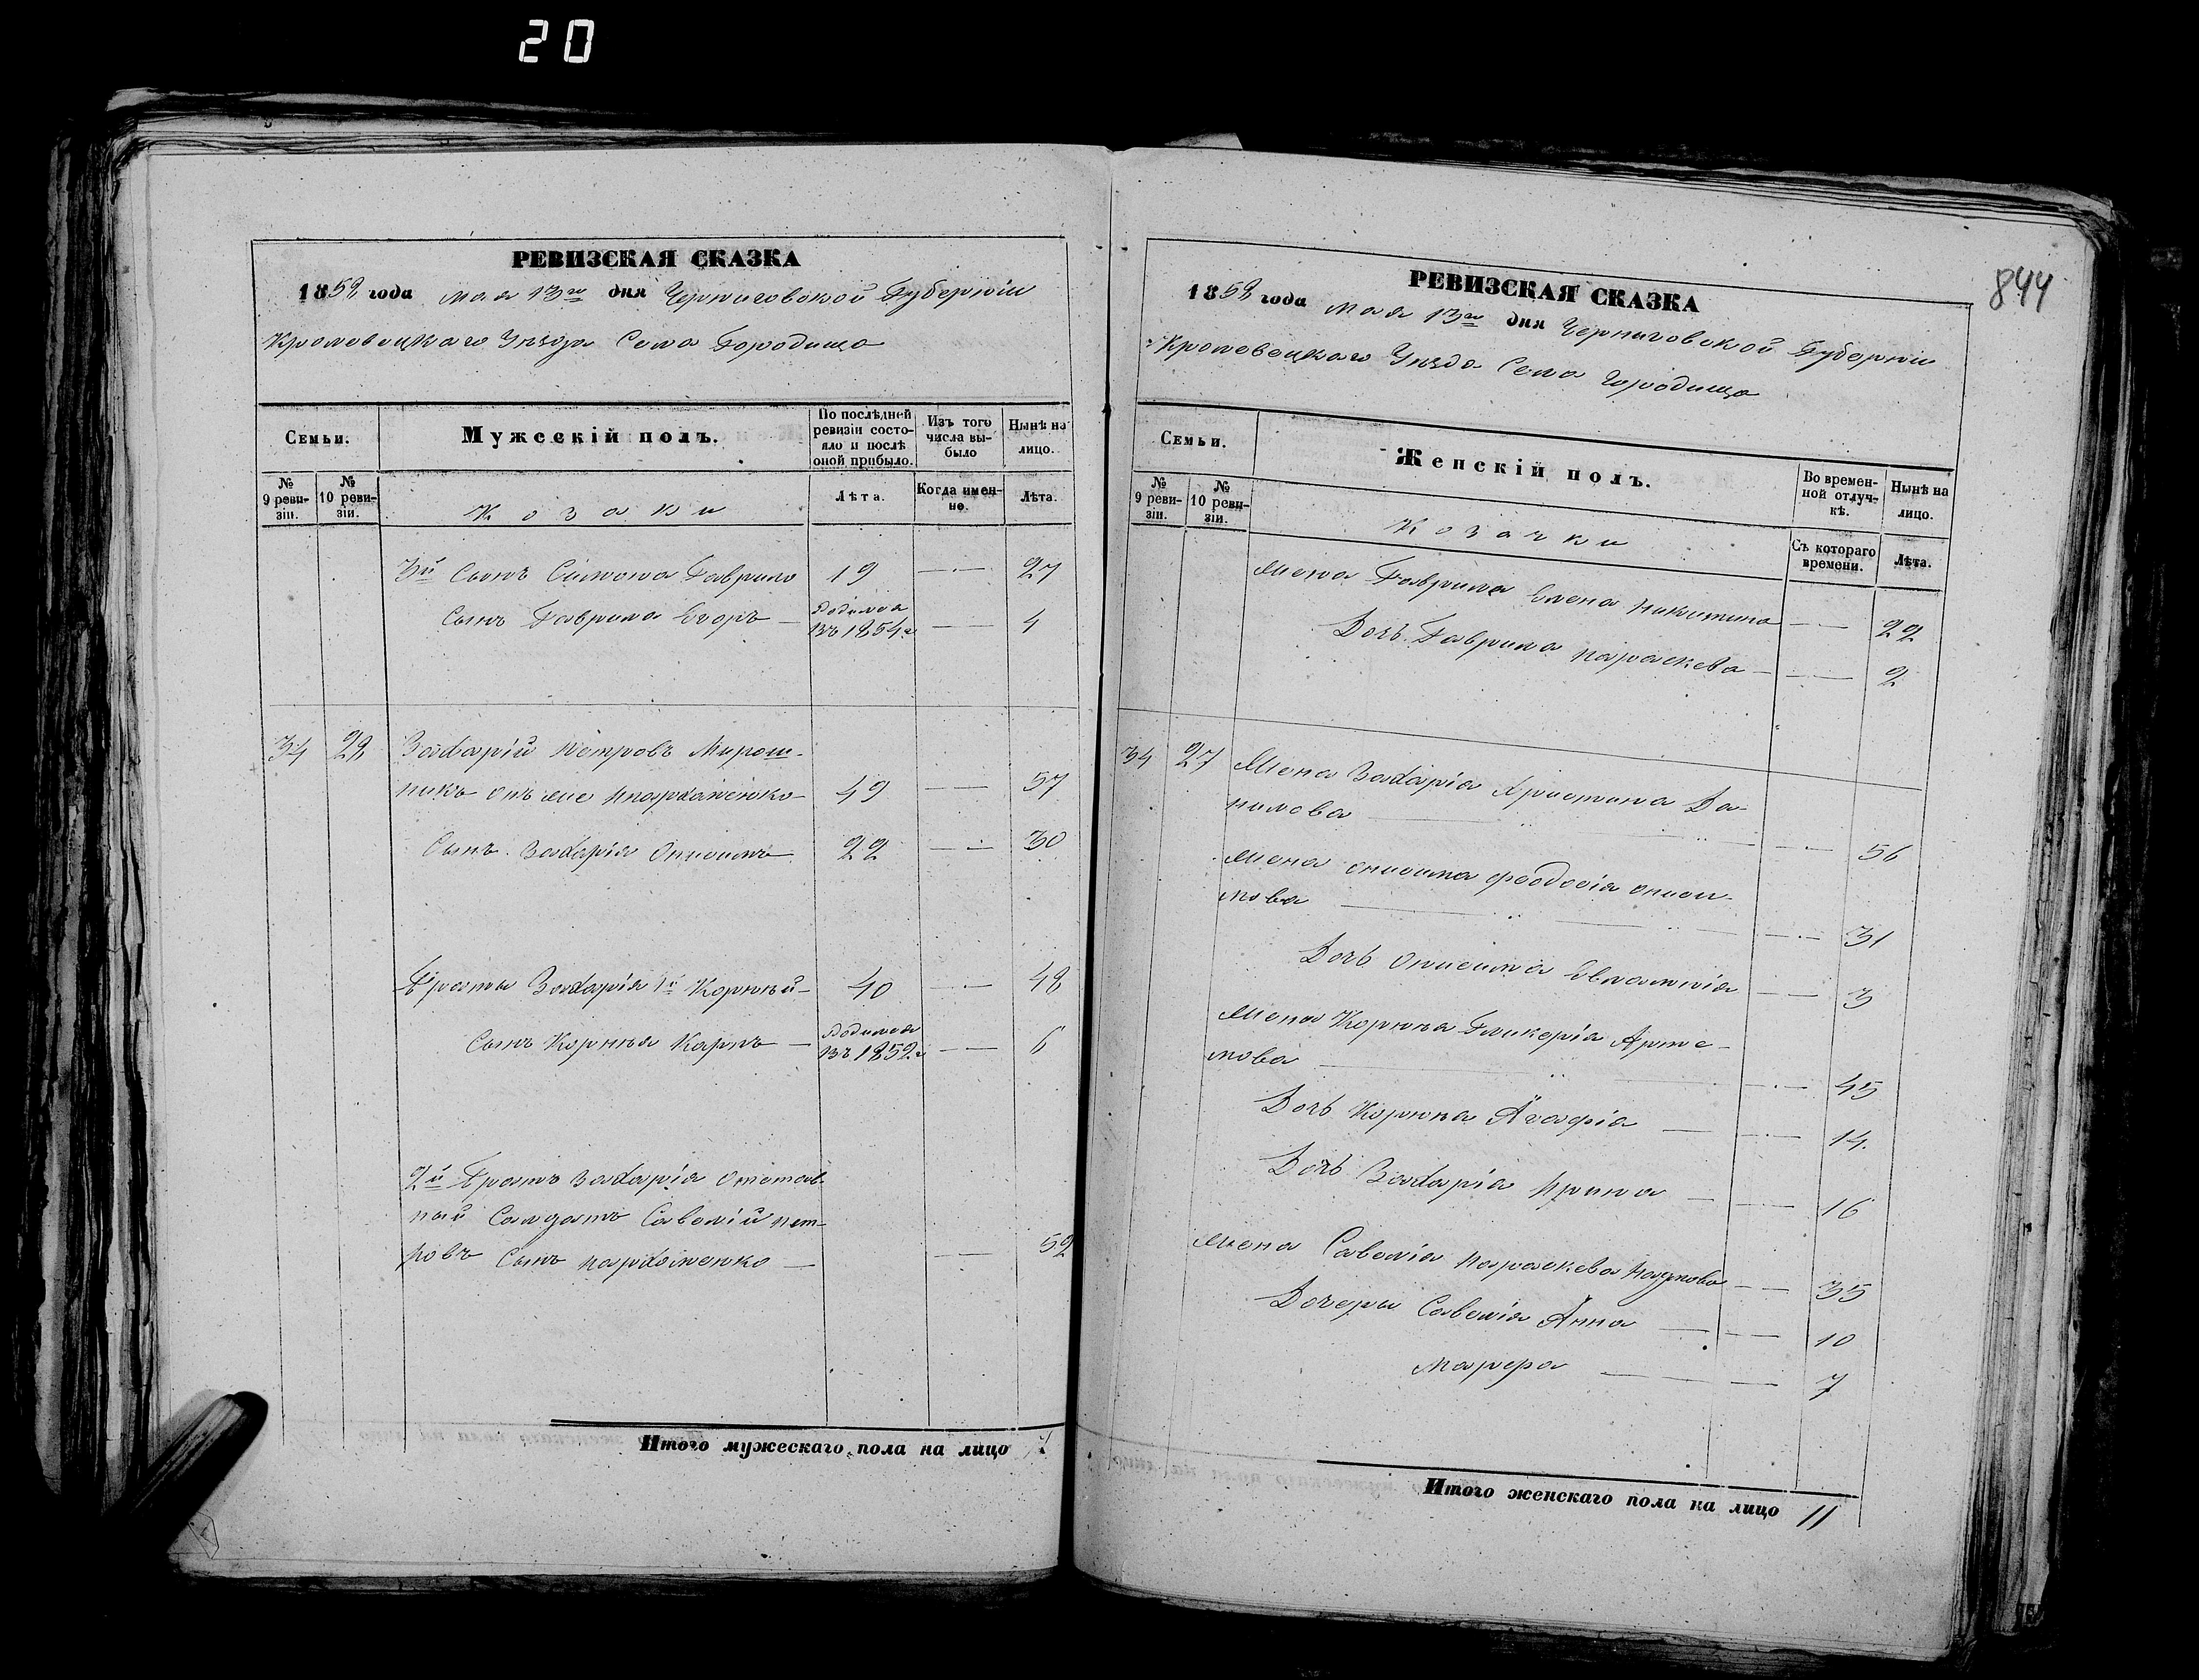 20
РЕВИЗСКАЯ СКАЗКА
1858 года мая 13го дня Черниговской Губерніи
Кролевецкаго Уѣзда Села Городища
Семьи.
Мужескій полъ.
По послѣдней ревизіи состояло и послѣ оной прибыло.
Изъ того числа выбыло
Нынѣ на лицо.
№ 9 ревизіи.
№ 10 ревизіи.
Козаки
Лѣта.
Когда именно.
Лѣта.
3й Сынъ Симона Гаврило 19 — 27
Сынъ Гаврила Егоръ — Родился въ 1854 г — 4
34 28 Захарій Петровъ Мирош-
никъ онъ же Пархоменко 49 — 57
Сынъ Захарія Онисимъ 22 — 30
Братья Захарія 1й Корнѣй 40 — 48
Сынъ Корнѣя Карпъ — Родился въ 1852 г — 6
2й Братъ Захарія Отстав-
ный Солдатъ Савелій Пет-
ровъ Сынъ Пархоменко — 52
Итого мужескаго пола на лицо 7
844
РЕВИЗСКАЯ СКАЗКА
1858 года мая 13го дня Черниговской Губерніи
Кролевецкаго Уѣзда Села Городища
Семьи.
Женскій полъ.
Во временной отлучкѣ.
Нынѣ на лицо.
№ 9 ревизіи.
№ 10 ревизіи.
Козачки
Съ котораго времени.
Лѣта.
Жена Гаврила Елена Никитина — 22
Дочь Гаврила Параскева — 2
34 27 Жена Захарія Христина Да-
нилова — 56
Жена Онисима ФеодосіяОниси-
мова — 31
Дочь Онисима Евлампія — 3
Жена Корнѣя Гликерія Арте-
мова — 45
Дочь Корнѣя Агафія — 14
Дочь Захарія Ирина — 16
Жена Савелія Параскева Наумова — 35
Дочери Савелія Анна — 10
Марфа — 7
Итого женскаго пола на лицо 11